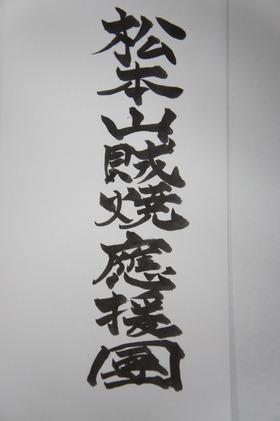 松本山賊焼應援団